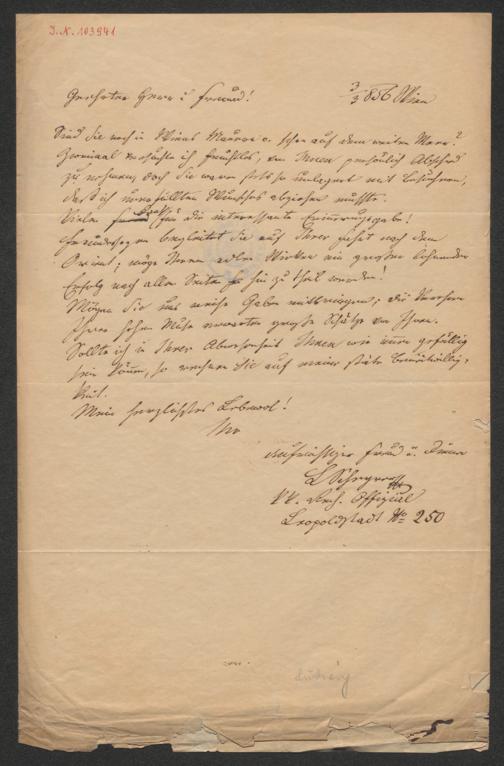 I. N. 103941
Geehrter Herr u Freund!
3/3 856 Wien
Sind Sie noch in Wiens Mauern o. schon auf dem weiten Meere?
Zweimal versuchte ich fruchtlos, von Ihnen persönlich Abschied
zu nehmen, doch Sie waren stets so umlagert mit Besuchern,
daß ich unerfüllten Wunsches abziehen mußte.
Vielen Dank für die interessante Erinnerungsgabe!
begleitet Sie auf Ihrer Fahrt nach dem
Orient; möge Ihrem edlen Wirken ein großer lohnender
Erfolg nach allen Seiten hin zu theil werden!
Mögen Sie uns reiche Gaben mitbringen; die Verehrer
Ihrer hohen Muse erwarten große Schätze von Ihnen.
Sollte ich in Ihrer Abwesenheit Ihnen wie immer gefällig
sein können, so rechnen Sie auf meine stäte Bereitwillig-
keit.
Mein herzlichstes Lebewol!
Ihr
aufrichtiger Freund u. Diener
k k. Offizial
Leopoldstadt No 250
5